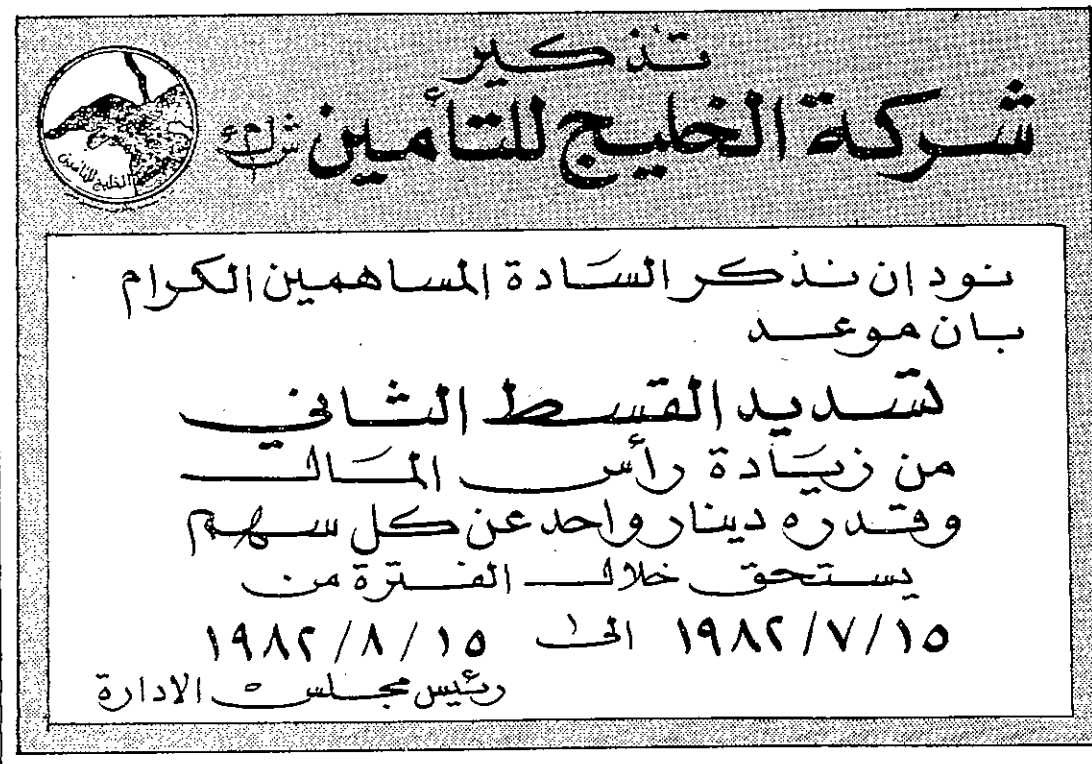 تذكير
شركة الخليج للتأمين ش.م.ك
شركة الخليج للتأمين
نود ان نذكر السادة المساهمين الكرام
بان موعد
تسديد القسط الثاني
من زيادة رأس المال
وقدره دينار واحد عن كل سهم
يستحق خلال الفترة من
١٩٨٢/٧/١٥ الى ١٩٨٢/٨/١٥
رئيس مجلس الادارة